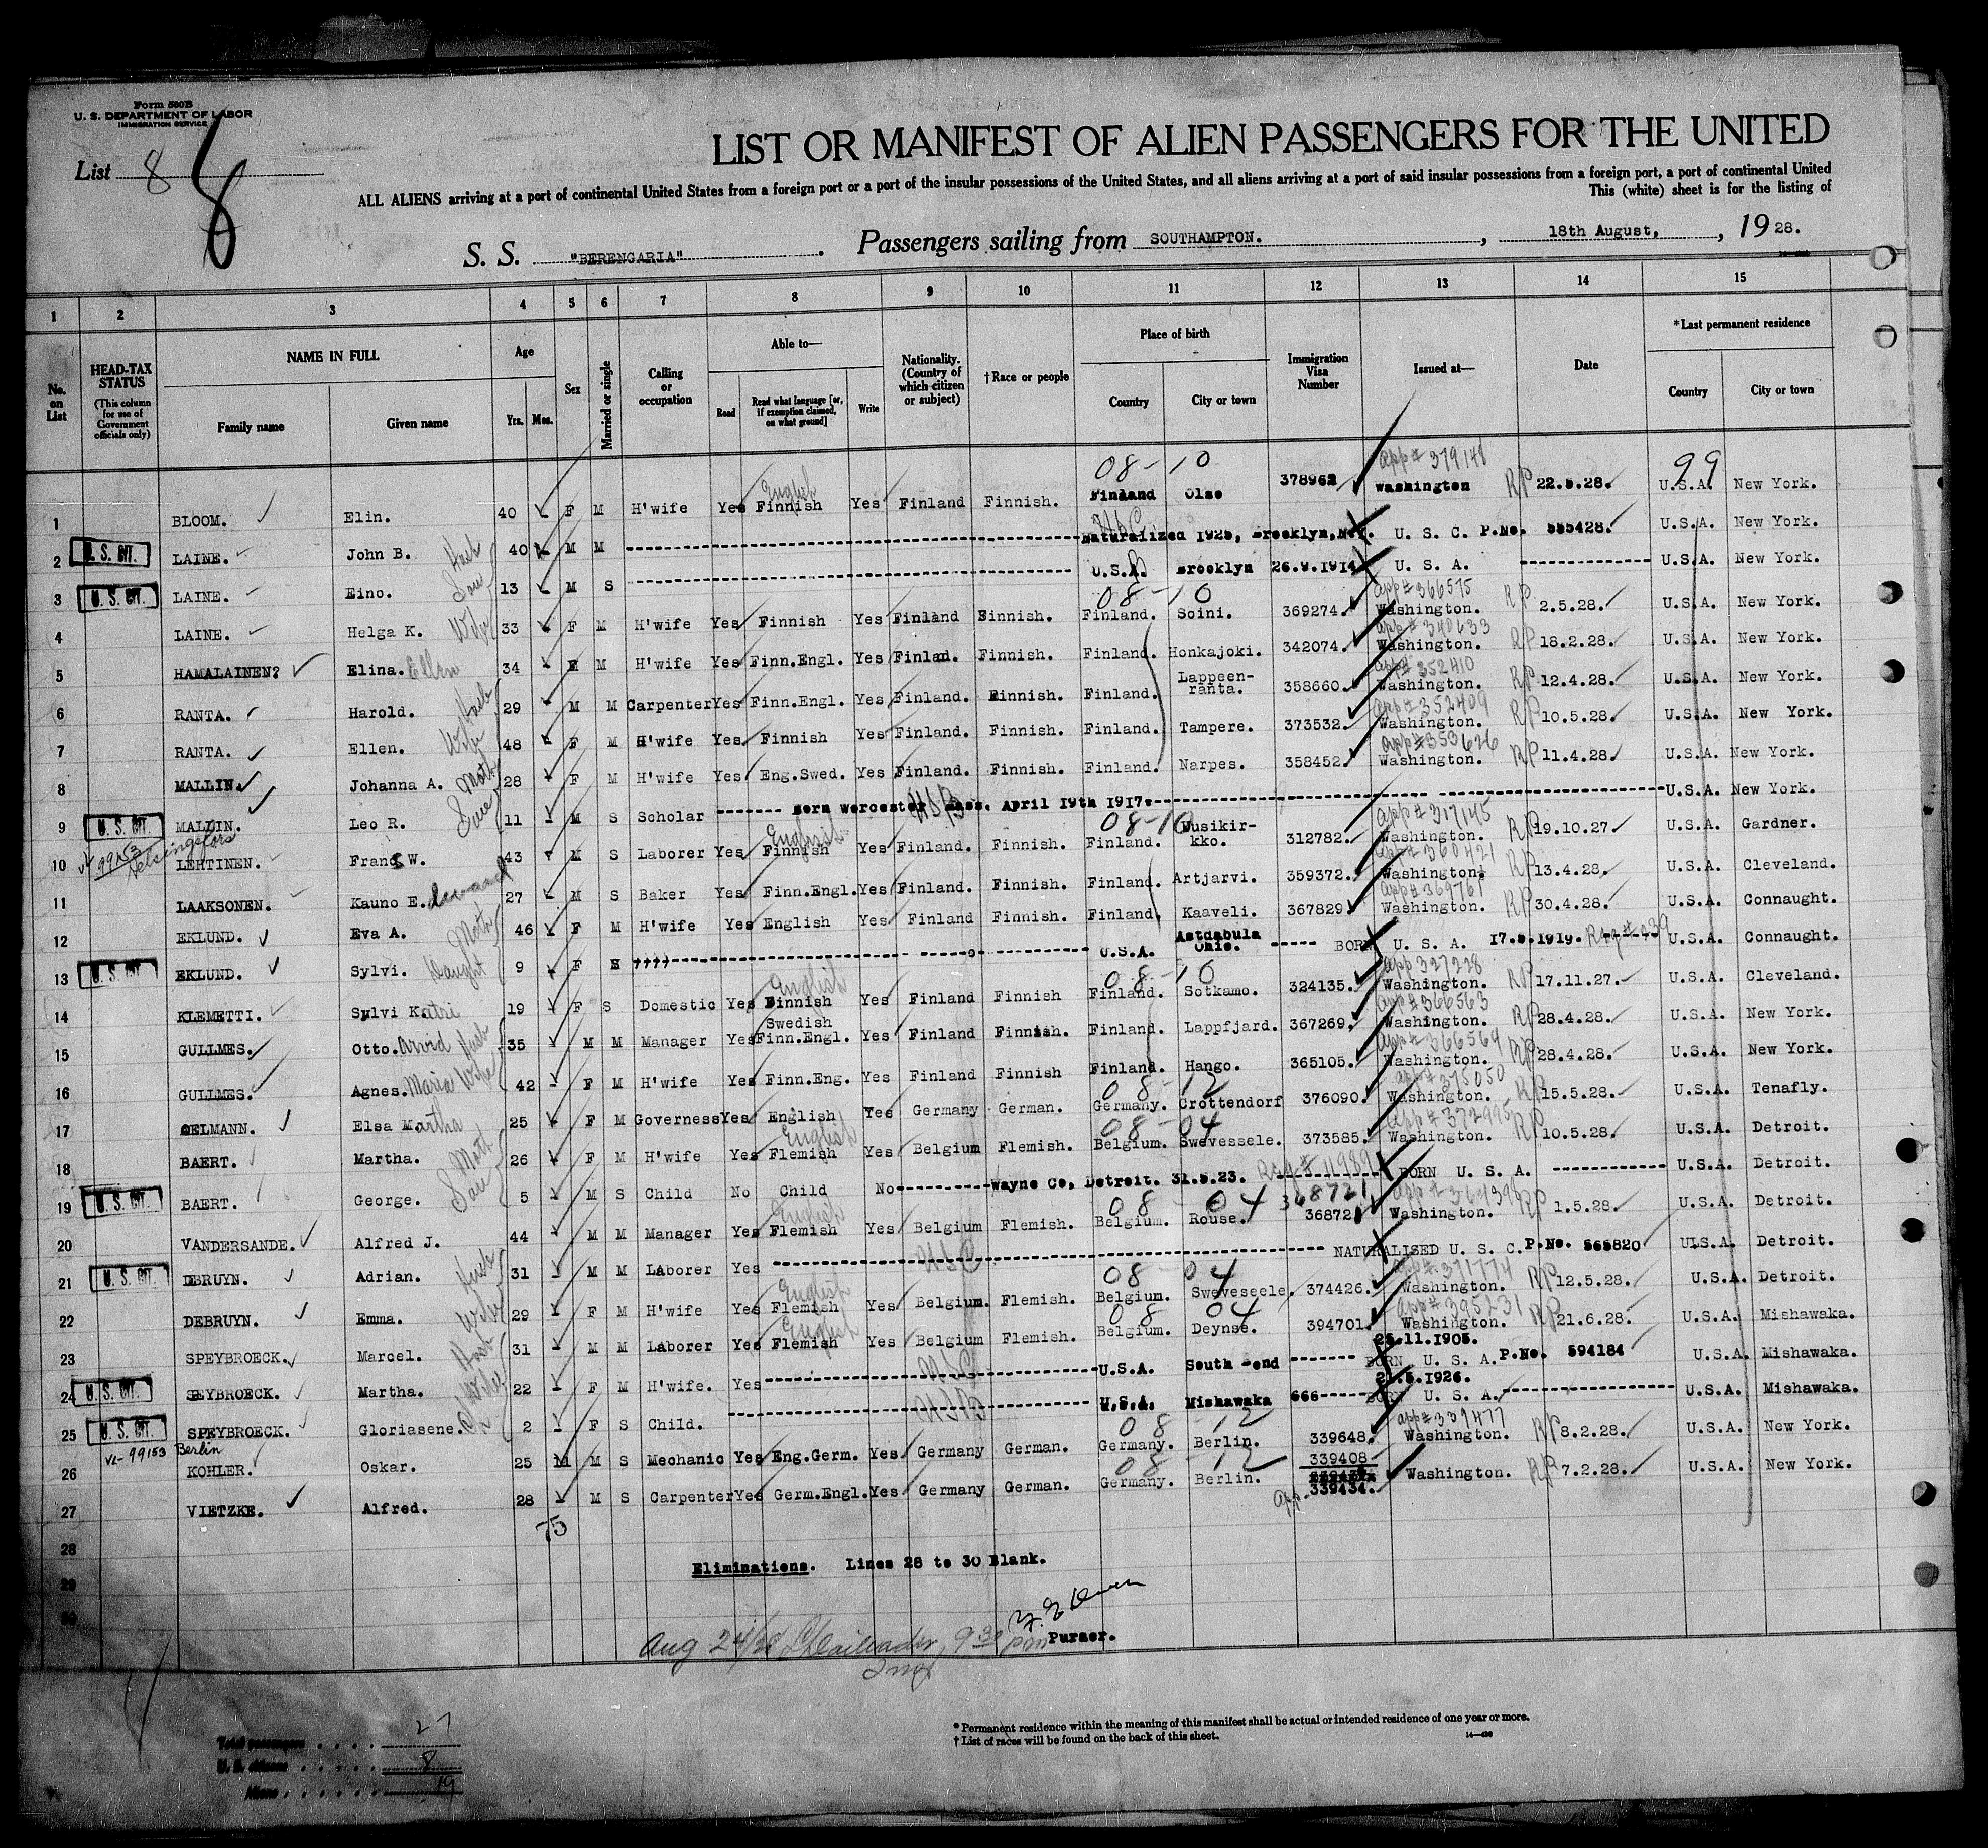 Form 500B
U. S. DEPARTMENT OF LABOR
IMMIGRATION SERVICE
List 8
8
LIST OR MANIFEST OF ALIEN PASSENGERS FOR THE UNITED
ALL ALIENS arriving at a port of continental United States from a foreign port or a port of the insular possessions of the United States, and all aliens arriving at a port of said insular possessions from a foreign port, a port of continental United
This (white) sheet is for the listing of
S. S. "BERENGARIA". Passengers sailing from SOUTHAMPTON., 18th August, , 19 28.
1 2 3 4 5 6 7 8 9 10 11 12 13 14 15
No. on List
HEAD-TAX STATUS (This column for use of Government officials only)
NAME IN FULL Family name Given name
Age Yrs. Mos.
Sex
Married or single
Calling or occupation
Able to— Read Read what language [or, if exemption claimed, on what ground] Write
Nationality. (Country of which citizen or subject)
†Race or people
Place of birth Country City or town
Immigration Visa Number
Issued at—
Date
*Last permanent residence Country City or town
08-10 app# 379148 99
1 BLOOM. Elin. 40 F M H'wife Yes Finnish English Yes Finland Finnish. Finland Olso 378962 Washington RP 22.5.28. U.S.A. New York.
2 U. S. CIT. LAINE. John B. Husb 40 M M Naturalized 1925, Brooklyn,N.Y. U. S. C. P.No. 555428. U.S.A. New York.
3 U. S. CIT. LAINE. Eino. Son 13 M S U.S.A. Brooklyn 26.9.1914 U. S. A. U.S.A. New York.
08-10 app# 366575
4 LAINE. Helga K. Wife 33 F M H'wife Yes Finnish Yes Finland Finnish. Finland. Soini. 369274. Washington. RP 2.5.28. U.S.A. New York.
app# 340633
5 HAMALAINEN? Elina. Ellen 34 F M H'wife Yes Finn.Engl. Yes Finlan. Finnish. Finland. Honkajoki. 342074. Washington. RP 18.2.28. U.S.A. New York.
app# 352410
6 RANTA. Harold. Husb 29 M M Carpenter Yes Finn.Engl. Yes Finland. Finnish. Finland. Lappeen-ranta. 358660. Washington. RP 12.4.28. U.S.A. New York.
app# 352409
7 RANTA. Ellen. Wife 48 F M H'wife Yes Finnish Yes Finland. Finnish. Finland. Tampere. 373532. Washington. RP 10.5.28. U.S.A. New York.
app# 353626
8 MALLIN. Johanna A. Moth 28 F M H'wife Yes Eng.Swed. Yes Finland. Finnish. Finland. Narpes. 358452. Washington. RP 11.4.28. U.S.A. New York.
9 U. S. CIT. MALLIN. Leo R. 11 M S Scholar Born Worcester Mass. April 19th 1917. U.S.A. New York.
99153 Helsingfors 08-10 app# 317145
10 LEHTINEN. Frans W. 43 M S Laborer Yes Finnish English Yes Finland. Finnish. Finland. Uusikir-kko. 312782. Washington. RP 19.10.27. U.S.A. Gardner.
app# 360421
11 LAAKSONEN. Kauno E. 27 M S Baker Yes Finn.Engl. Yes Finland. Finnish. Finland. Artjarvi. 359372. Washington. RP 13.4.28. U.S.A. Cleveland.
app# 369761
12 EKLUND. Eva A. Moth 46 F M H'wife Yes English Yes Finland Finnish. Finland. Kaaveli. 367829. Washington. RP 30.4.28. U.S.A. Connaught.
13 U. S. CIT. EKLUND. Sylvi. Daught 9 F S U.S.A. Astdabula Ohio. BORN U. S. A. 17.5.1919. U.S.A. Connaught.
08-10 app 327228
14 KLEMETTI. Sylvi Katri 19 F S Domestic Yes Finnish English Yes Finland Finnish Finland. Sotkamo. 324135. Washington. RP 17.11.27. U.S.A. Cleveland.
app# 366563
15 GULLMES. Otto. Arvid Husb 35 M M Manager Yes Swedish Finn.Engl. Yes Finland Finnish. Finland. Lappfjard. 367269. Washington. RP 28.4.28. U.S.A. New York.
app# 366564
16 GULLMES. Agnes. Maria Wife 42 F M H'wife Yes Finn.Eng. Yes Finland Finnish Finland. Hango. 365105. Washington. RP 28.4.28. U.S.A. New York.
08-12 app# 375050
17 OELMANN. Elsa Martha 25 F M Governess Yes English Yes Germany German. Germany. Crottendorf 376090. Washington. RP 15.5.28. U.S.A. Tenafly.
08-04 app# 372995
18 BAERT. Martha. Moth 26 F M H'wife Yes Flemish English Yes Belgium Flemish. Belgium. Swevessele. 373585. Washington. RP 10.5.28. U.S.A. Detroit.
19 U. S. CIT. BAERT. George. Son 5 M S Child No Child No Wayne Co, Detroit. 31.5.23. BORN U. S. A. U.S.A. Detroit.
08 04 368721
20 VANDERSANDE. Alfred J. 44 M M Manager Yes Flemish English Yes Belgium Flemish. Belgium. Rouse. 36872 Washington. RP 1.5.28. U.S.A. Detroit.
21 U. S. CIT. DEBRUYN. Adrian. Husb 31 M M Laborer Yes USC NATURALISED U. S. C. P.No. 565820 U.S.A. Detroit.
08 04 app# 371774
22 DEBRUYN. Emma. Wife 29 F M H'wife Yes Flemish English Yes Belgium. Flemish. Belgium. Sweveseele. 374426. Washington. RP 12.5.28. U.S.A. Detroit.
08 04 app# 395231
23 SPEYBROECK. Marcel. Husb 31 M M Laborer Yes Flemish English Yes Belgium Flemish. Belgium. Deynse. 394701. Washington. RP 21.6.28. U.S.A. Mishawaka.
24 U. S. CIT. SPEYBROECK. Martha. Wife 22 F M H'wife. Yes U.S.A. South Bend BORN U. S. A. 25.11.1905. P.No. 594184 U.S.A. Mishawaka.
25 U. S. CIT. SPEYBROECK. Gloriasene. Ch 2 F S Child. USB U.S.A. Mishawaka 666 BORN U. S. A. U.S.A. Mishawaka.
VL-99153 Berlin 08-12 app# 339477
26 KOHLER. Oskar. 25 M S Mechanic Yes Eng.Germ. Yes Germany German. Germany. Berlin. 339648. Washington. RP 8.2.28. U.S.A. New York.
08-12 339408
27 VIETZKE. Alfred. 28 M S Carpenter Yes Germ.Engl. Yes Germany German. Germany. Berlin. app. 339434. Washington. RP 7.2.28. U.S.A. New York.
75
28
29
30
Eliminations. Lines 28 to 30 Blank.
Purser.
Aug 24/28 9 30 pm
Insp
Total passengers 27
U. S. citizens 8
Aliens 19
* Permanent residence within the meaning of this manifest shall be actual or intended residence of one year or more.
† List of races will be found on the back of this sheet.
14—430